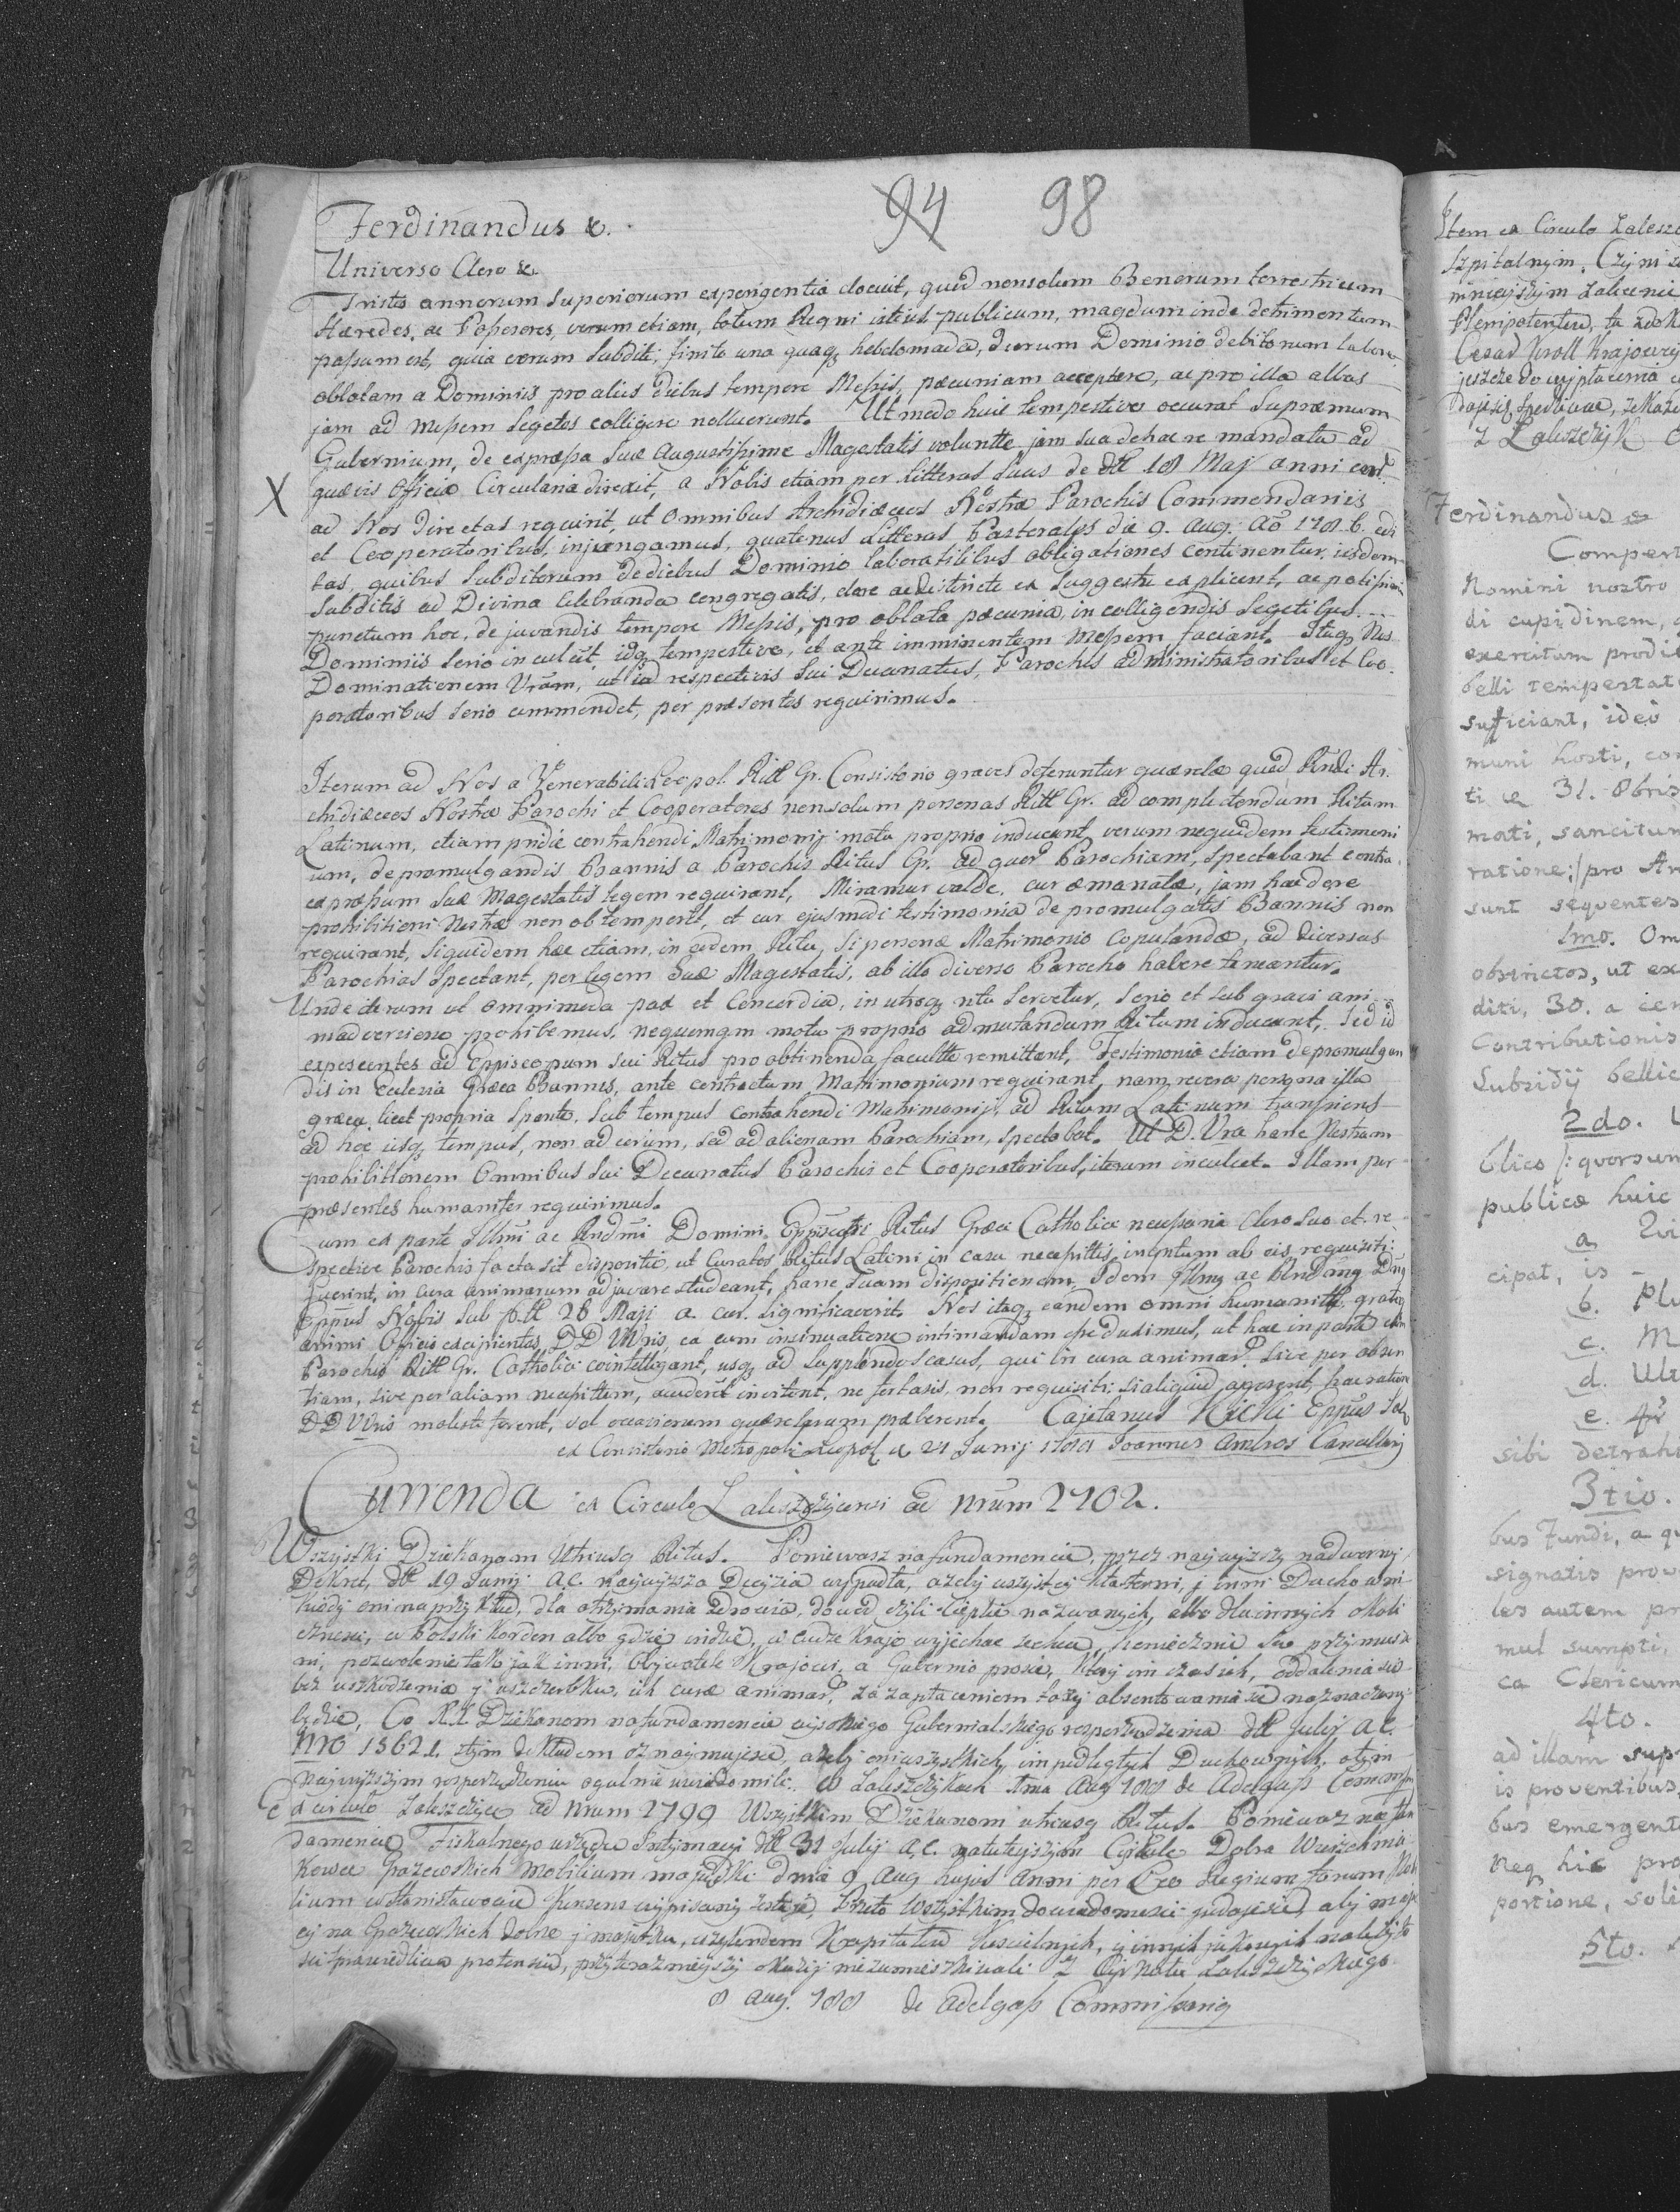 94 98
Ferdinandus &.
Universo Clero &.
Tristis annorum Superiorum experigentia docuit, quod nonsolum Bonorum terrestrium
Hæredes, ac Possores, verum etiam, totum Regni istius publicum, magdum inde detrimentum
passum est, quia eorum Subditi, finito una quaq hebdomada, dierum Dominio debitorum labore
oblatam a Dominiis pro aliis diebus tempore Messis, pæcuniam acceptare, ac pro illa albas
jam ad messem Segetes colligere nolluerunt. Ut modo huic tempestive ocurat Supræmum
Gubernium, de expressa Suæ Augustissime Magestatis voluntte jam sua de hac re mandata ad
X quævis Officia Circularia direxit, a Nobis etiam per litteras suas de dtt 18 Maj anni curt
ad Nos directas requirit, ut Omnibus Archidiæces Nostræ Parochis Commendariis
et Cooperatoribus, injungamus, quatenus Litteras Pastorales de 9. aug: ao 1786. edi
tas, quibus Subditorum de diebus Dominio laboratilibus obligationes continentur, iisdem
Subditis ad Divina Celebranda congregatis, clare ac districte ex Suggestu explicent, ac potissimum
punctum hoc, de juvandis tempore Messis, pro oblata pæcunia, in colligendis Segetibus
Dominiis serio inculcent, idq tempestive, et ante imminentem Messem faciant. Itaq Nos
Dominationem Vram, ut id respectivis Sui Decanatus, Parochis administratoribus et Coo
peratoribus serio commendet, per præsentes requirimus.
Iterum ad Nos a Venerabili Leopol. Ritt Gr. Consistorio graves deferuntur quærelæ quod Rndi Ar.
chidiæces Nostræ Parochi et Cooperatores nonsolum personas Ritt Gr. ad complectendum Ritum
Latinum, etiam pridie contrahendi Matrimonij motu proprio inducant, verum nequidem testimoni
um, de promulgandis Bannis a Parochis Ritus Gr. ad quor Parochiam, Spectabant contra
expressum Suæ Magestatis legem requirant, Miramur valde, cur æmanatæ, jam hac de re
prohibitioni Nostræ non obtemperet, et cur ejusmodi testimonia de promulgatis Bannis non
requirant, siquidem hæc etiam, in eodem Ritu, si personæ Matrimonio Copulandæ, ad diversas
Parochias Spectant, per legem Suæ Magestatis, ab illo diverso Parocho habere teneantur.
Unde iterum ut omnimoda pax et Concordia, in utroq ritu Servetur, Serio et sub gravi ani
madversione prohibemus, nequemqm motu proprio ad mutandum Ritum inducant, Sed id
exposcentes ad Eppiscopum sui Ritus pro obtinenda facultte remittant, Testimonia etiam de promulgan
dis in Eclezia Græca Bannis, ante contractum Matrimonium requirant, nam revera persona illa
græca, licet propria Sponte, sub tempus contrahendi Matrimonij, ad Ritum Latinum transiens
ad hoc usq tempus, non ad eorum, sed ad alienam Parochiam, Spectabat. Ut D. Vra hanc Nostram
prohibitionem Omnibus Sui Decanatus Parochis et Cooperatoribus, iterum inculcet. Illam per
præsentes humaniter requirimus.
Cum ex parte Illmi ac Rndmi Domini Eppiscopi Ritus Græci Catholici Clero suo et re
spective Parochis facta sit dispositio, ut Curatos Ritus Latini in casu necessittis, inqntum ab eis requisiti
fuerint, in cura animarum adjuvare studeant, hanc Suam dispositionem, Idem Illmg ac Rndmg Dng
Eppus Nobis sub dtt 28 Maji a. cur. Significaverit. Nos itaq eandem omni humanitte grateq
animi Officio excipientes, DD VVris, ea cum insinuatione intimandam esse duximus, ut hac in parte cum
Parochis Ritt Gr. Catholici cointelligant, usq ad Supplendos casus, qui in cura animar, sive per absen
tiam, sive per aliam necessittem, ne forte non requisiti, si aliquid agerent, hac ratione
DD VVris moleste ferent, vel occasionem quærelarum præberent. Cajetanus Kicki Eppus Sal
ex Consistorio Metropoli Leopol a 21 Junij 1788 Joannes Ambros Cancellarij
Currenda ex Circulo Zaleszczycensi ad Nrum 2702.
Wszystki Dziekanom Utriusq Ritus. Poniewasz na fundamencie, przez naywyzszy nadworny
Dekret, dtt 19 Junij a.c. Naywyzsza Decyzia wypadła, azeby wszyscy Klasterni, y inni Duchowni
kiedy oni na przykład, dla otrzymania zdrowia, do wód czyli Cieplic nazwanych, albo dla innych okoli
cznosci, w Polski Kordon albo gdzie indzie, w cudze kraje wyjechac zechcą, koniecznie są przymusze
ni, pozwolenie tak jak inni Obywatele Krajowi, a Gubernio prosic, oddalenia sie
bez uszkodzenia y uszczerbku, ich curæ animar, za zapłaceniem taxy absentowania sie naznaczony
będzie, Co XX Dziekanom na fundamencie wysokiego Gubernialskiego rosporządzenia dtt Julij a.c.
Nro 15621. ztym dokładem oznaymujesie, azeby oni wszystkich, im podległych Duchownych, otym
naywyzszym rosporządzeniu ogulnie uwiadomili. w Zaleszczykach 1ma Aug 1788 de Adelgass Commissg
Ex circulo Zaleszczyce ad Nrum 2799 Wszystkim Dziekanom utriusq Ritus. Poniewaz na fun
damencie Fiskalnego urzędu Intymacyi dtt 31 Julij a.c. natuteyszym Cyrkule Dobra
kowce Grazewskich Mobilium maiątki dnia 9 Aug hujus Anni per Cæs Regium forum Nobi
lium w Stanisławowie Konkurs wypisany zostaje, Przeto wszystkim dowiadomosci podajesię, aby
ey na Grazewskich dobra y maiątku, wzglendem Kapitałów Koscielnych, y innych jakowych należyto
sci sprawiedliwa pretensie, przyterazniejszy okazij niezamieszkiwali Z Cyrkułu Zaleszczyskiego
8 aug. 788 de Adelgass Commissarig
Item ex Circulo Zaleszc
Szpitalnym. Czym
mnieyszym Zalecenie
Plenipotentem, ta
Cesar Kroll Krajowey
jeszcze do wypłacenia
z Zaleszczyk
Ferdinandus &
Compert
Nomini nostro
di cupidinem,
exercitum prodi
belli tempestat
sufficiant, ideo
muni hosti, con
ti de 31. 8bris
mati, sancitum
ratione: pro Ar
sunt sequentes
1mo. Om
obstrictos, ut ex
diti, 30. a cen
Contributionis
Subsidij bellic
2do.
blico /: quorsum
publicæ huic
a
cipat, is
b. Plu
c. M
d. Ult
e.
sibi detrah
3tio.
bus Fundi, a qu
signatis prov
les autem pr
mul sumpti,
ca Clericum
4to.
ad illam sup
is proventibus
bus emergent
neq hic pro
portione, soli
5to.